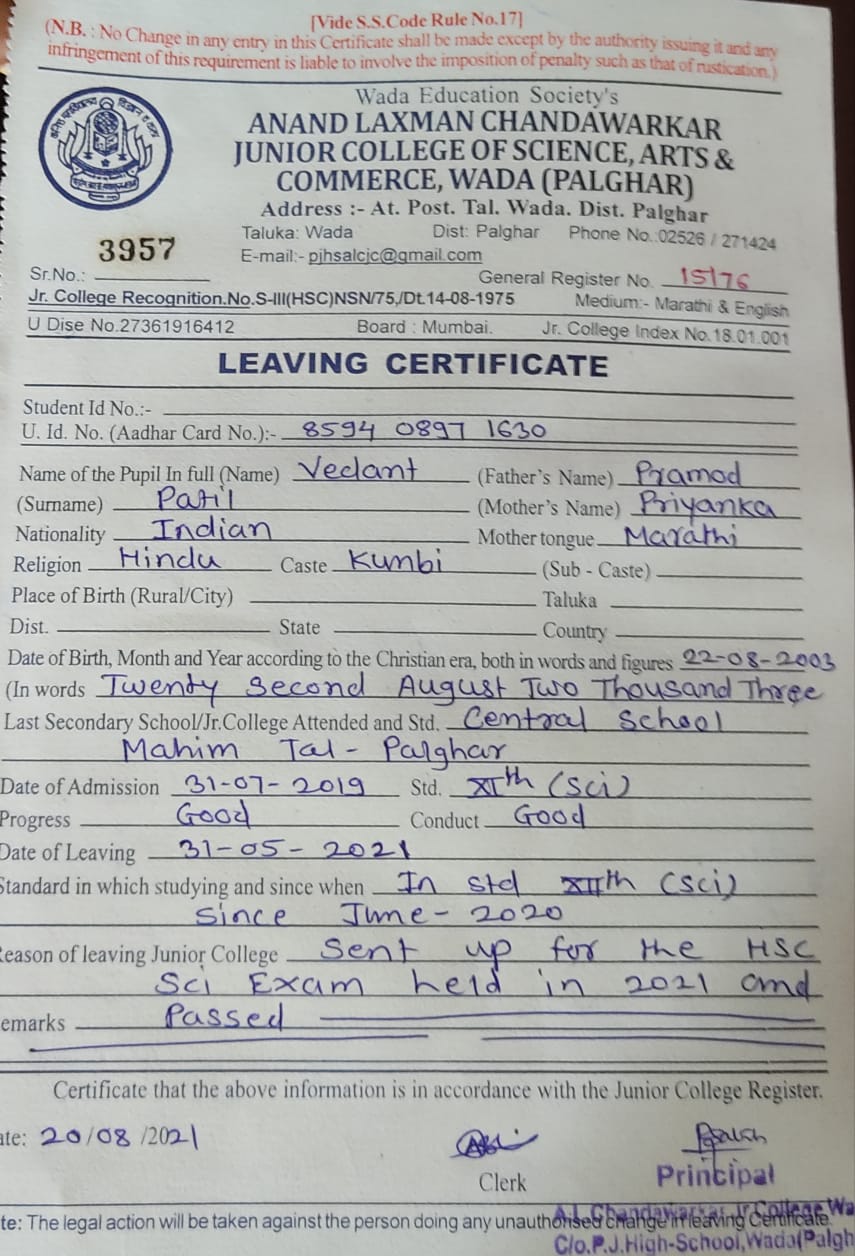 [Vide S.S.Code Rule No.17]
(N.B. : No Change in any entry in this Certificate shall be made except by the authority issuing it and any
infringement of this requirement is liable to involve the imposition of penalty such as that of rustication.)
Wada Education Society's
ANAND LAXMAN CHANDAWARKAR
JUNIOR COLLEGE OF SCIENCE, ARTS &
COMMERCE, WADA (PALGHAR)
Address :- At. Post. Tal. Wada. Dist. Palghar
Taluka: Wada Dist: Palghar Phone No.:02526 / 271424
E-mail:- pjhsalcjc@gmail.com
Sr.No.: 3957 General Register No. 15176
Jr. College Recognition.No.S-III(HSC)NSN/75,/Dt.14-08-1975 Medium:- Marathi & English
U Dise No.27361916412 Board : Mumbai. Jr. College Index No.18.01.001
LEAVING CERTIFICATE
Student Id No.:-
U. Id. No. (Aadhar Card No.):- 8594 0897 1630
Name of the Pupil In full (Name) Vedant (Father's Name) Pramod
(Surname) Patil (Mother's Name) Priyanka
Nationality Indian Mother tongue Marathi
Religion Hindu Caste Kunbi (Sub - Caste)
Place of Birth (Rural/City) Taluka
Dist. State Country
Date of Birth, Month and Year according to the Christian era, both in words and figures 22-08-2003
(In words Twenty Second August Two Thousand Three
Last Secondary School/Jr.College Attended and Std. Central School
Mahim Tal - Palghar
Date of Admission 31-07-2019 Std. XIth (Sci)
Progress Good Conduct Good
Date of Leaving 31-05-2021
Standard in which studying and since when In std XIIth (Sci)
Since June-2020
Reason of leaving Junior College Sent up for the HSC
Sci Exam held in 2021 and
emarks Passed
Certificate that the above information is in accordance with the Junior College Register.
ate: 20/08/2021
Clerk Principal
te: The legal action will be taken against the person doing any unauthorised change in leaving Certificate.
A.L. Chandawarkar Jr College Wa
C/o.P.J.High-School,Wada(Palgh